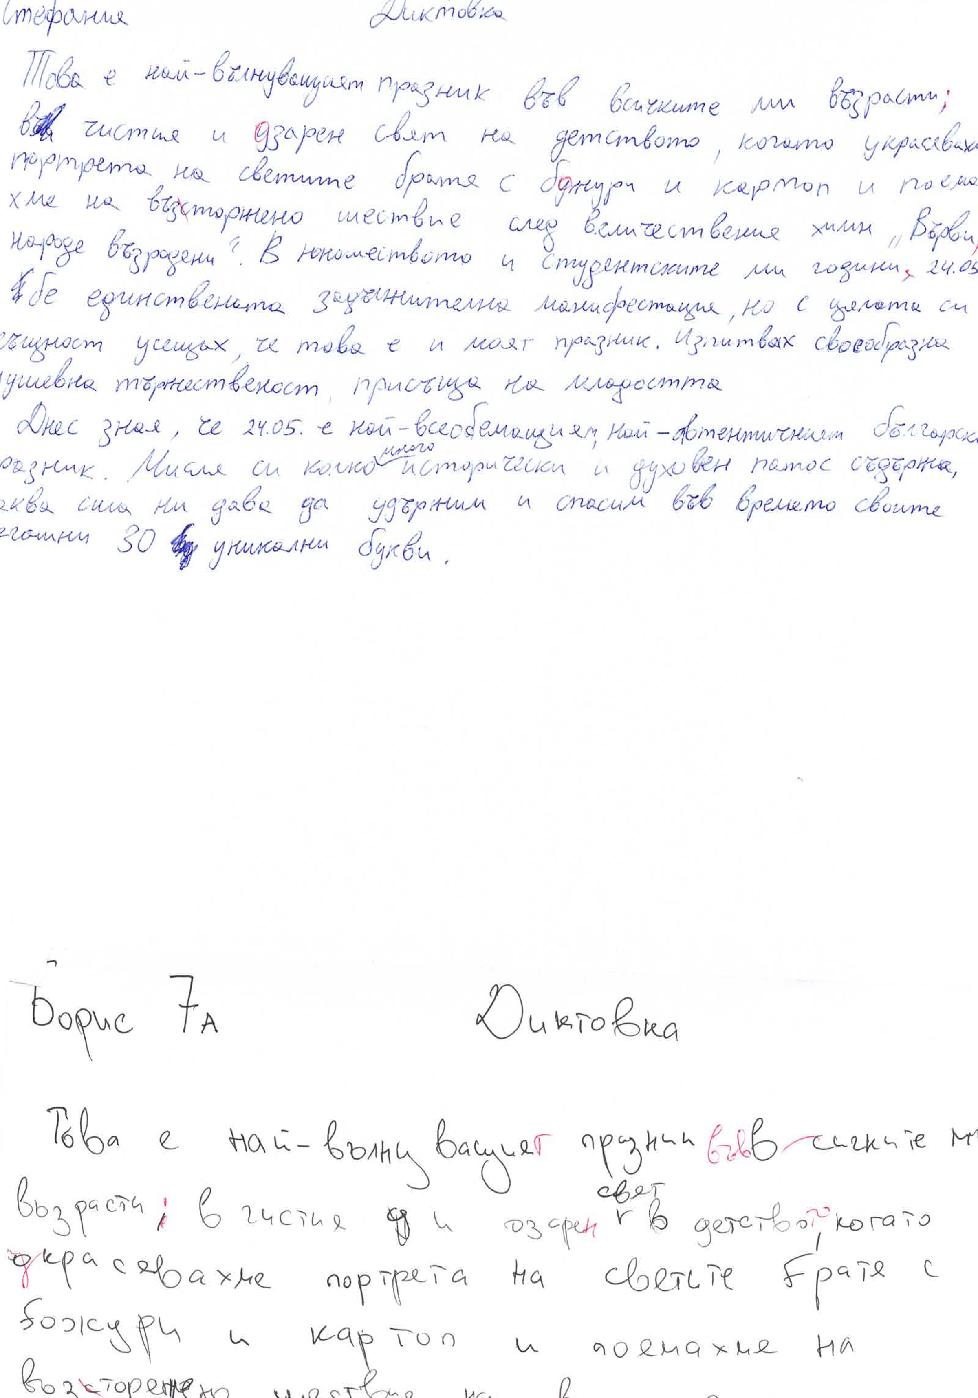 Стефания Диктовка
Това е най-вълнуващият празник във всичките ми възрасти;
в чистия и озарен свят на детството, когато украсявах
портрета на светите братя с божури и картон и поема
хме на възсторжено шествие след величествения химн „Върви,
народе възродени". В юношеството и студентските ми години, 24.05
бе единствената задължителна манифестация, но с цялата си
същност усещах, че това е и моят празник. Изпитвах своеобразна
душевна тържественост, присъща на младостта
Днес зная, че 24.05. е най-всеобемащият, най-автентичният българск
разник. Мисля си колко много исторически и духовен патос съдържа,
аква сила ни дава да удържим и спасим във времето своите
30 уникални букви.
Борис 7А Диктовка
Това е най-вълнуващият празник във сичките м
възрасти; в чистия и озарен свят в детството, когато
украсявахме портрета на светите братя с
божури и картон и поемахме на
шествие